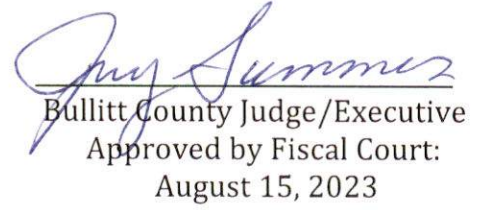 Jerry Summers
Bullitt County Judge/Executive
Approved by Fiscal Court:
August 15, 2023